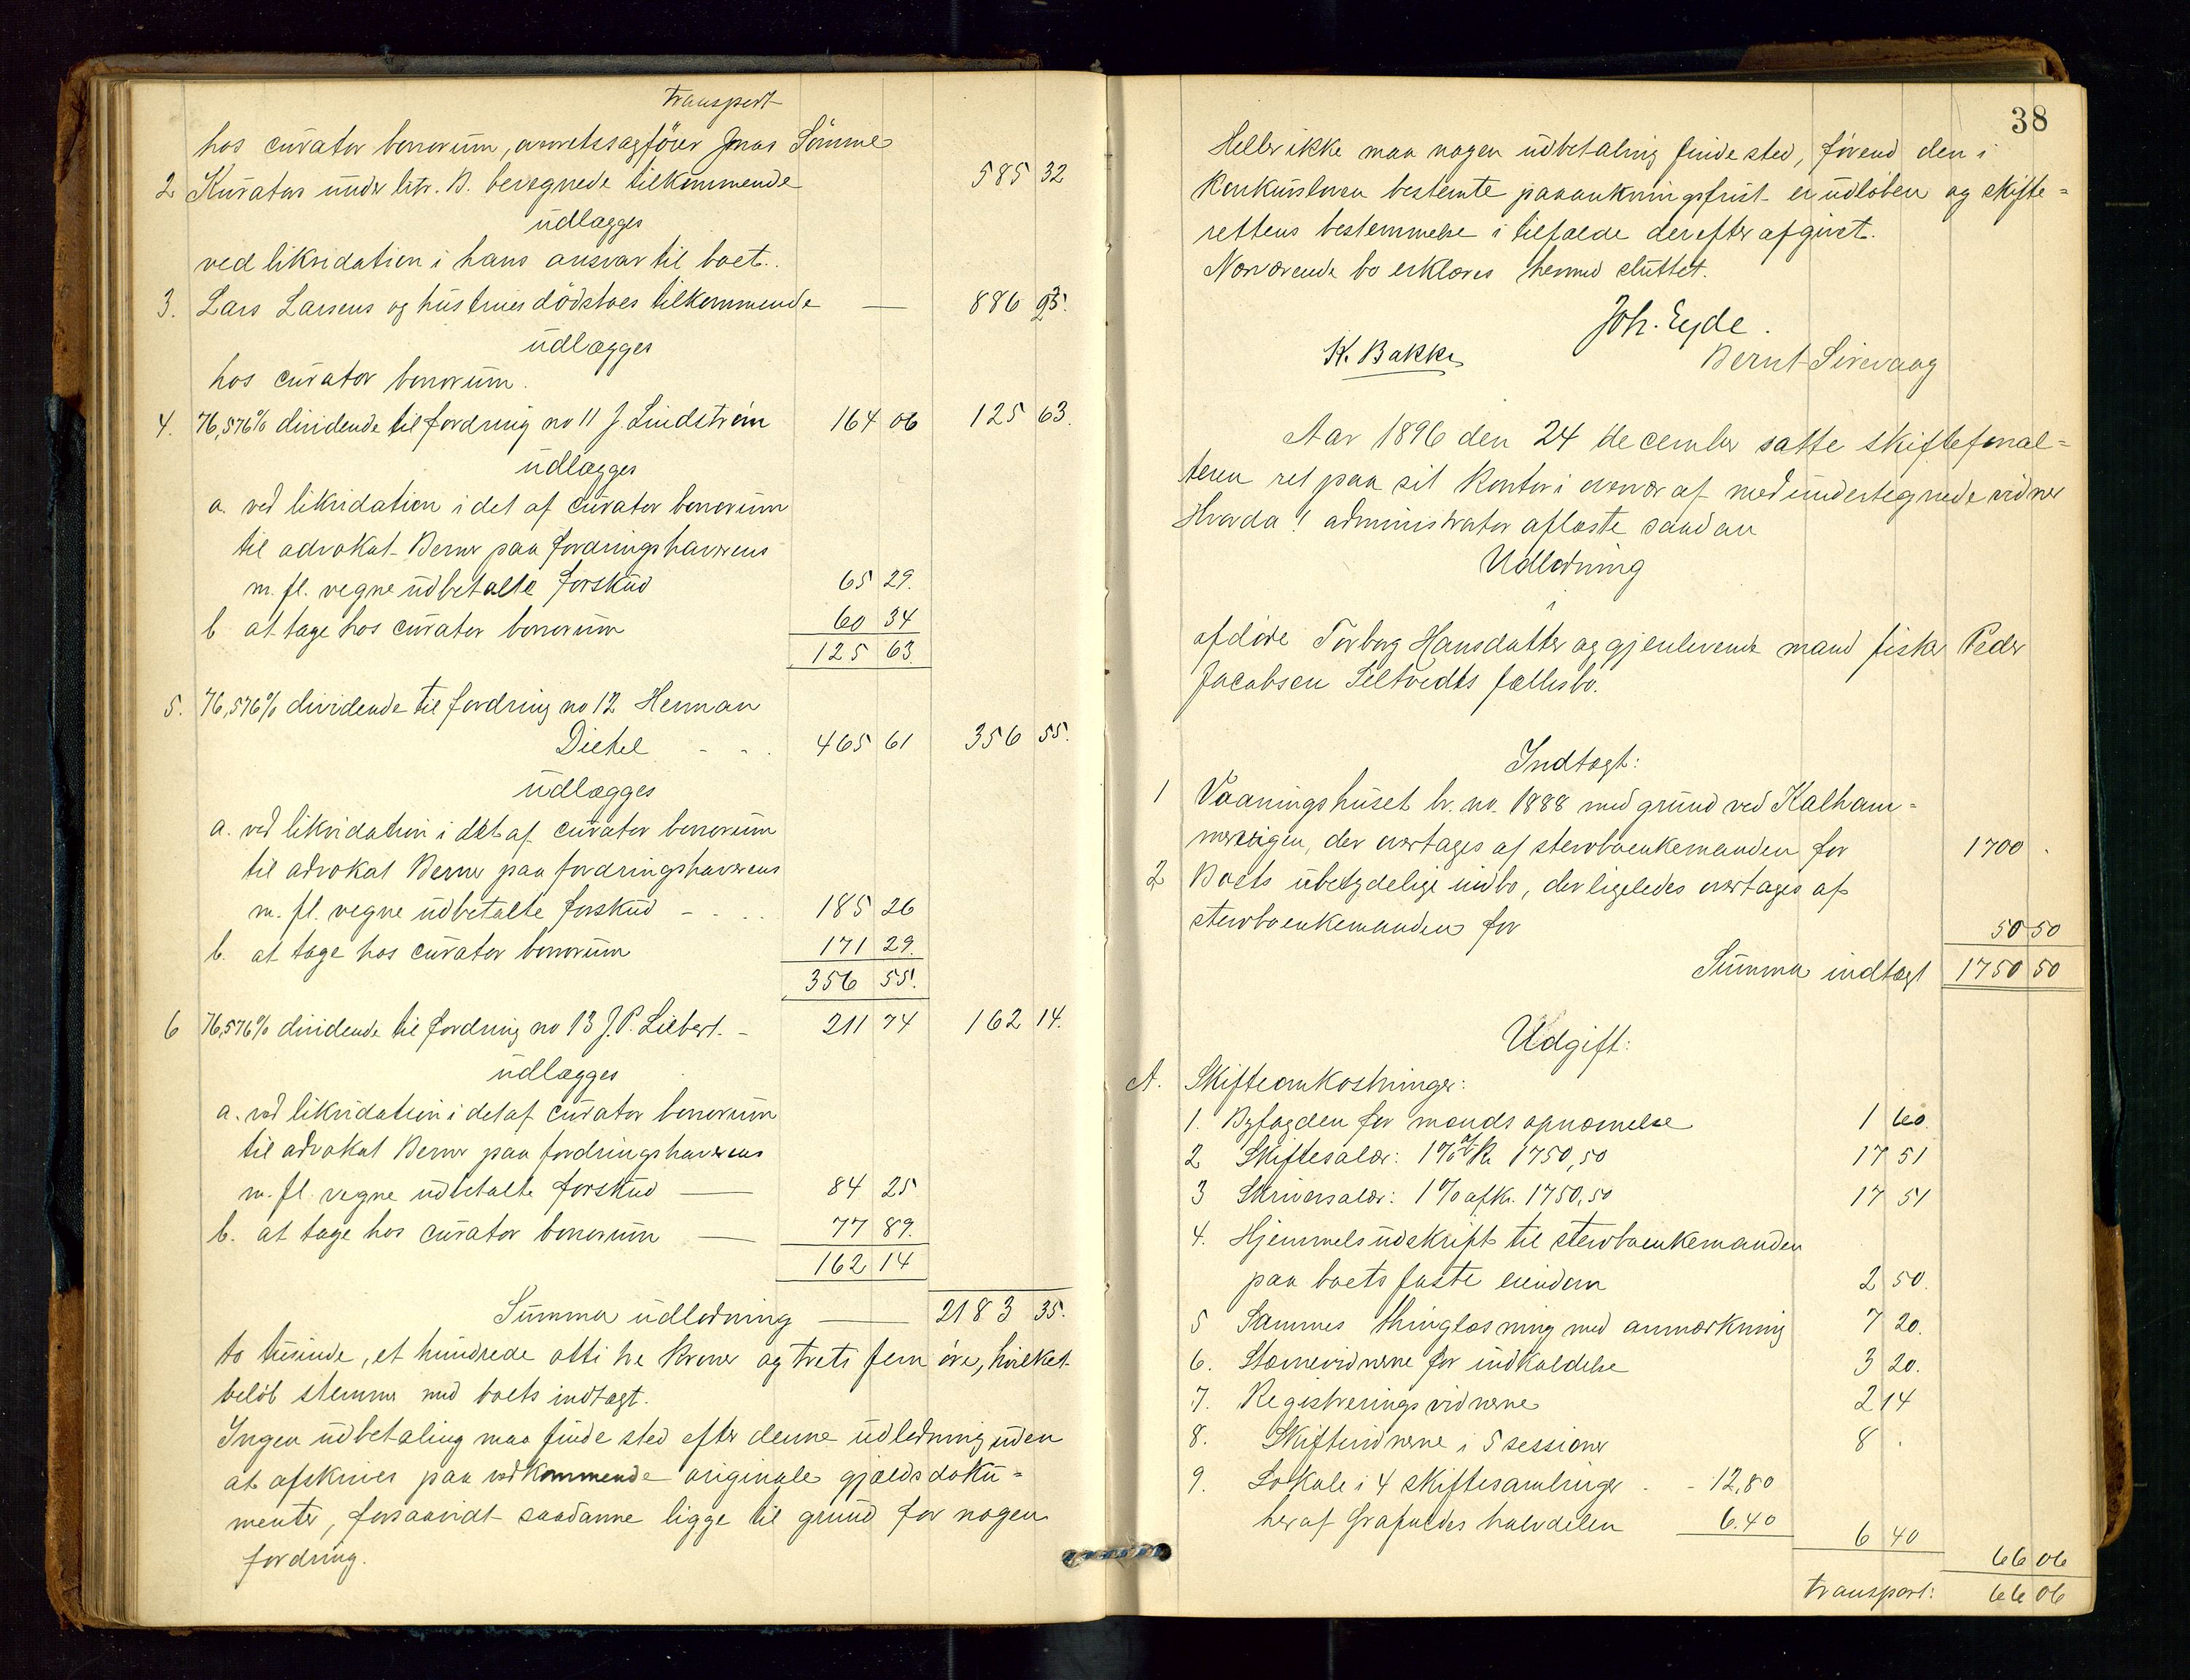 transport
hos curator bonorum, overretssagfører Jonas Sømme
2 Kurators under litr. B. beregnede tilkommende 585 32
udlægges
ved likvidation i hans ansvar til boet.
3. Lars Larsens og hustrues dødsboes tilkommende — 886 93.
udlægges
hos curator bonorum.
4. 76,576% dividende til fordring no 11 J. Lindstrøm 164 06 125 63.
udlægges
a. ved likvidation i det af curator bonorum
til advokat Berner paa fordringshaverens
m. fl. vegne udbetalte forskud 65 29.
b at tage hos curator bonorum 60 34
125 63.
5. 76,576% dividende til fordring no 12 Herman
Diehel - - . 465 61 356 55.
udlægges
a. ved likvidation i det af curator bonorum
til advokat Berner paa fordringshaverens
m. fl. vegne udbetalte forskud - . . . 185 26
b. at tage hos curator bonorum 171 29.
356 55.
6 76,576% dividende til fordring no 13 J. P. Liebert. - 211 74 162 14.
udlægges
a. ved likvidation i det af curator bonorum
til advokat Berner paa fordringshaverens
m. fl. vegne udbetalte forskud — 84 25
b. at tage hos curator bonorum — 77 89.
162 14
Summa udlodning — 2183 35.
to tusinde, et hundrede otti tre kroner og treti fem øre, hvilket
beløb stemmer med boets indtægt.
Ingen udbetaling maa finde sted efter denne udlodning uden
at afskrives paa vedkommende originale gjældsdoku=
menter, forsaavidt saadanne ligge til grund for nogen
fordring.
38
Heller ikke maa nogen udbetaling finde sted, førend den i
konkursloven bestemte paaankningsfrist er udløben og skifte=
rettens bestemmelse i tilfælde derefter afgivet.
Nærværende bo erklæres hermed sluttet.
Joh. Eyde.
K. Bakke Bernt Sirevaag
Aar 1896 den 24 december satte skifteforval=
teren ret paa sit kontor i overvær af nedundertegnede vidner
Hvorda! administrator aflæste saadan
Udlodning
i
afdøde Torborg Hansdatter og gjenlevende mand fisker Peder
Jacobsen Seltvedts fællesbo.
Indtægt:
1 Vaaningshuset br. no. 1888 med grund ved Kalham=
mervigen, der overtages af stervboenkemanden for 1700 .
2 Boets ubetydelige indbo, der ligeledes overtages af
stervboenkemanden for 50 50
Summa indtægt 1750 50
Udgift:
A. Skifteomkostninger:
1. Byfogden for mænds opnævnelse 1 60.
2 Skiftesalær: 1% af Kr 1750,50 17 51
3 Skriversalær: 1% af Kr. 1750,50 17 51
4. Hjemmelsudskrift til stervboenkemanden
paa boets faste eiendom 2 50.
5 Sammes thinglæsning med anmærkning 7 20.
6. Stævnevidnerne for indkaldelse 3 20.
7. Registreringsvidnerne 2 14
8. Skiftevidnerne i 5 sessioner 8 .
9. Lokale i 4 skiftesamlinger . - 12,80
heraf frafaldes halvdelen 6.40 6 40 66 06
transport: 66 06